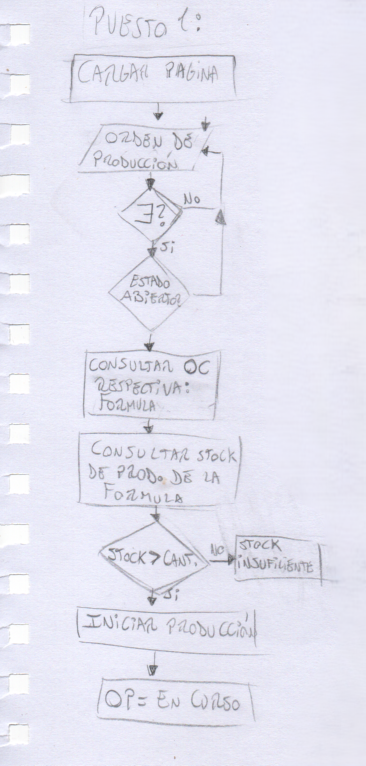 PUESTO 1:
CARGAR PAGINA
ORDEN DE
PRODUCCIÓN
∃?
No
Si
ESTADO
ABIERTO?
CONSULTAR OC
RESPECTIVA:
FORMULA
CONSULTAR STOCK
DE PROD. DE LA
FORMULA
STOCK > CANT.
No
STOCK
INSUFICIENTE
Si
INICIAR PRODUCCIÓN
OP = EN CURSO